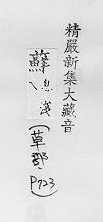 精嚴新集大藏音
蘇
息淺
(草部
P723)